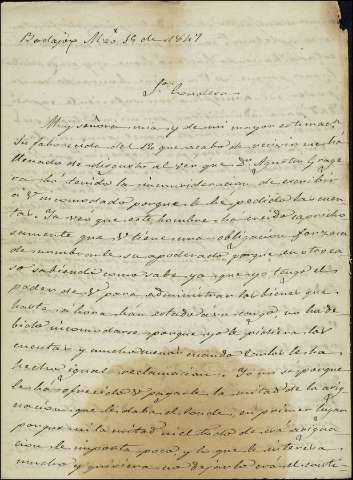 Badajoz Mzo. 19 de 1847
Sra. Condesa
Muy señora mia y de mi mayor estimacn.
Su faborecida del 15 que acabo de recivir me ha
llenado de disgusto al ver que Dn. Agustin Grage
ra há tenido la inconsideracion de escribir
á V incomodado porque le he pedido las cuen
tas. Ya veo que este hombre ha creido
samente que V tiene una obligacion forzosa
de nombrarle su apoderado porque en otro ca
so sabiendo como sabe ya que yo tengo el
poder de V para administrar los bienes que
hasta ahora han estado á su cargo, no ha de
bido incomodarse porque yo le pidiera las
cuentas y mucho menos cuando
hecho igual reclamacion. Yo no se porque
le há ofrecido V pagarle la mitad de la asig
nacion que le daba el Conde, en primer lugar
porque ni la mitad ni el todo de esa asigna
cion le importa poco y lo que le interesa
mucho y quisiera no dejarlo era el